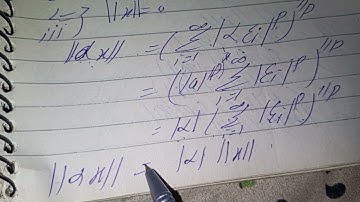 iii} ||x|| = 0
||αx|| = (∑_{i=1}^{∞} |α ξ_i|^p)^{1/p}
= (|α|^p ∑_{i=1}^{∞} |ξ_i|^p)^{1/p}
= |α| (∑_{i=1}^{∞} |ξ_i|^p)^{1/p}
||αx|| = |α| ||x||.